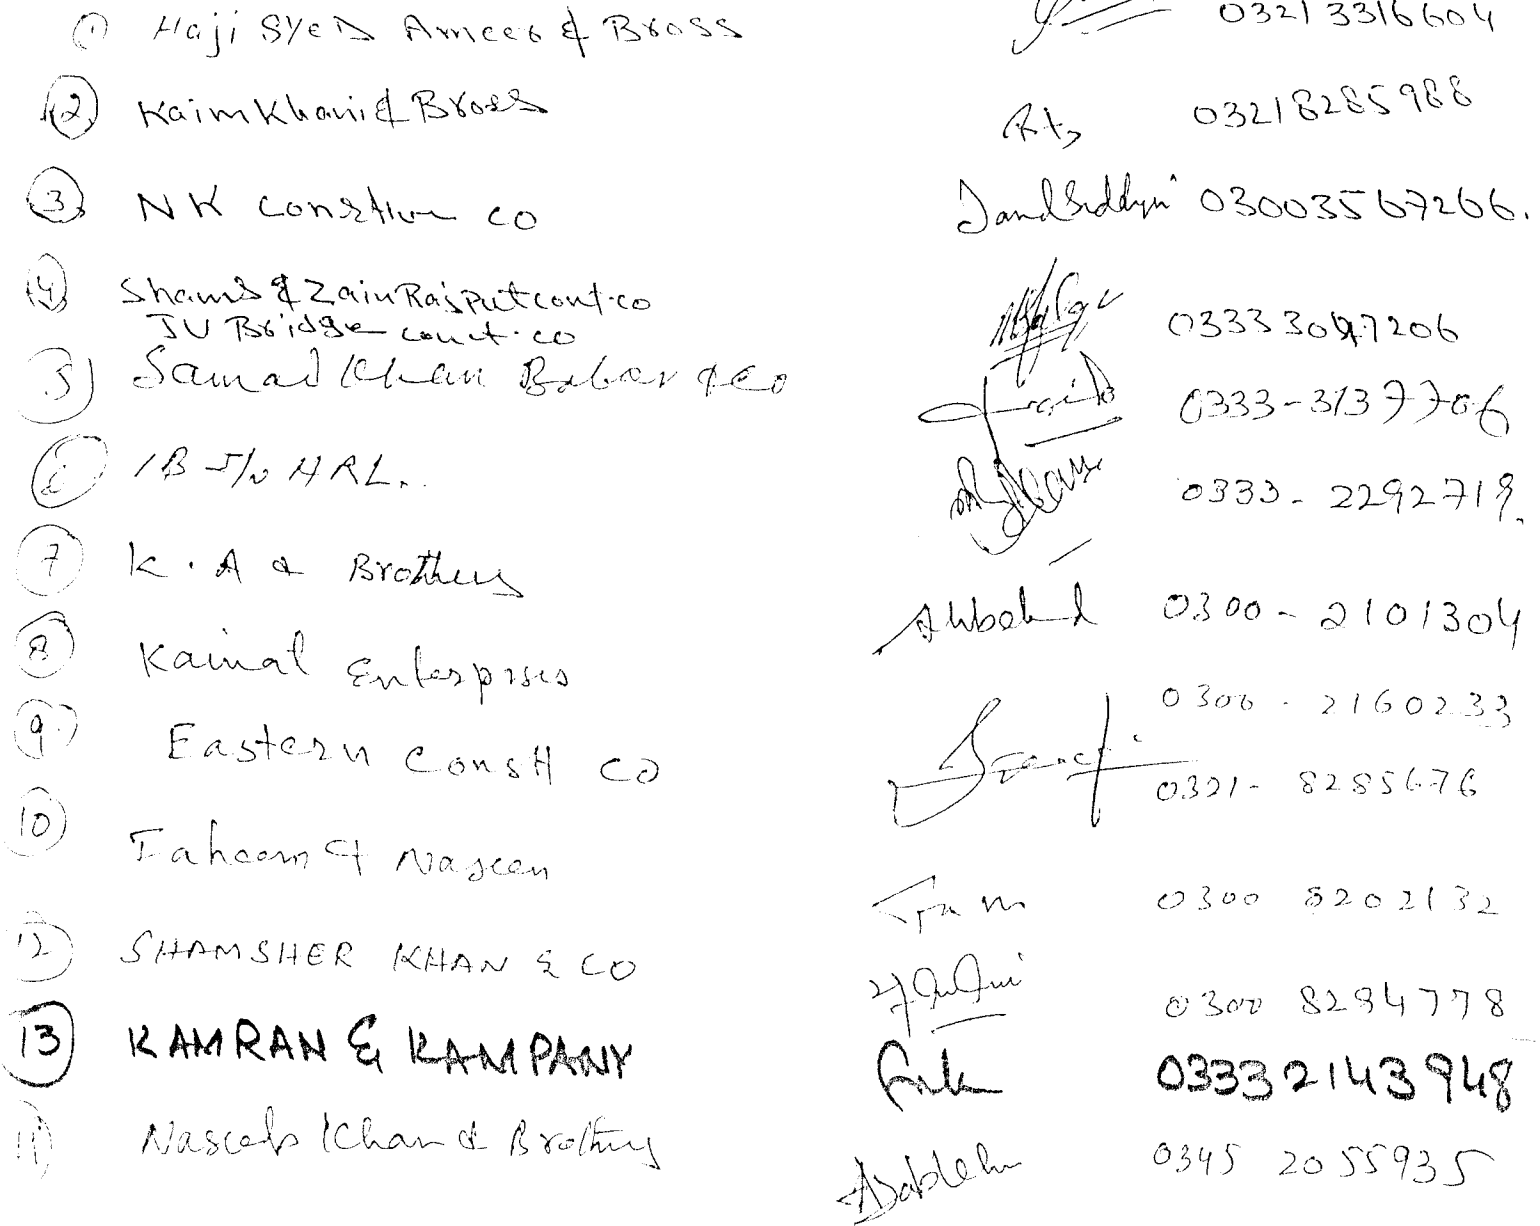 1 Haji Syed Ameer & Bross 03213316604
12 Kaim Khani & Bross 03218285988
3 NK Constion co 03003567266.
14 Shams & Zain Rajput cont.co
JV Bridge const.co 03333047206
5 Samad Khan Babar & co 0333-3137706
6 IB J/V HRL. 0333-2292719.
7 K.A & Brothers 0300-2101304
8 Kainat Enterprises 0300-2160233
9 Eastern Constt co 0321-8285676
10 Faheem & Naseem 0300 8202132
12 SHAMSHER KHAN & CO 0300 8294778
13 KAMRAN & KAMPANY 03332143948
11 Naseeb Khan & Brothers 0345 2055935